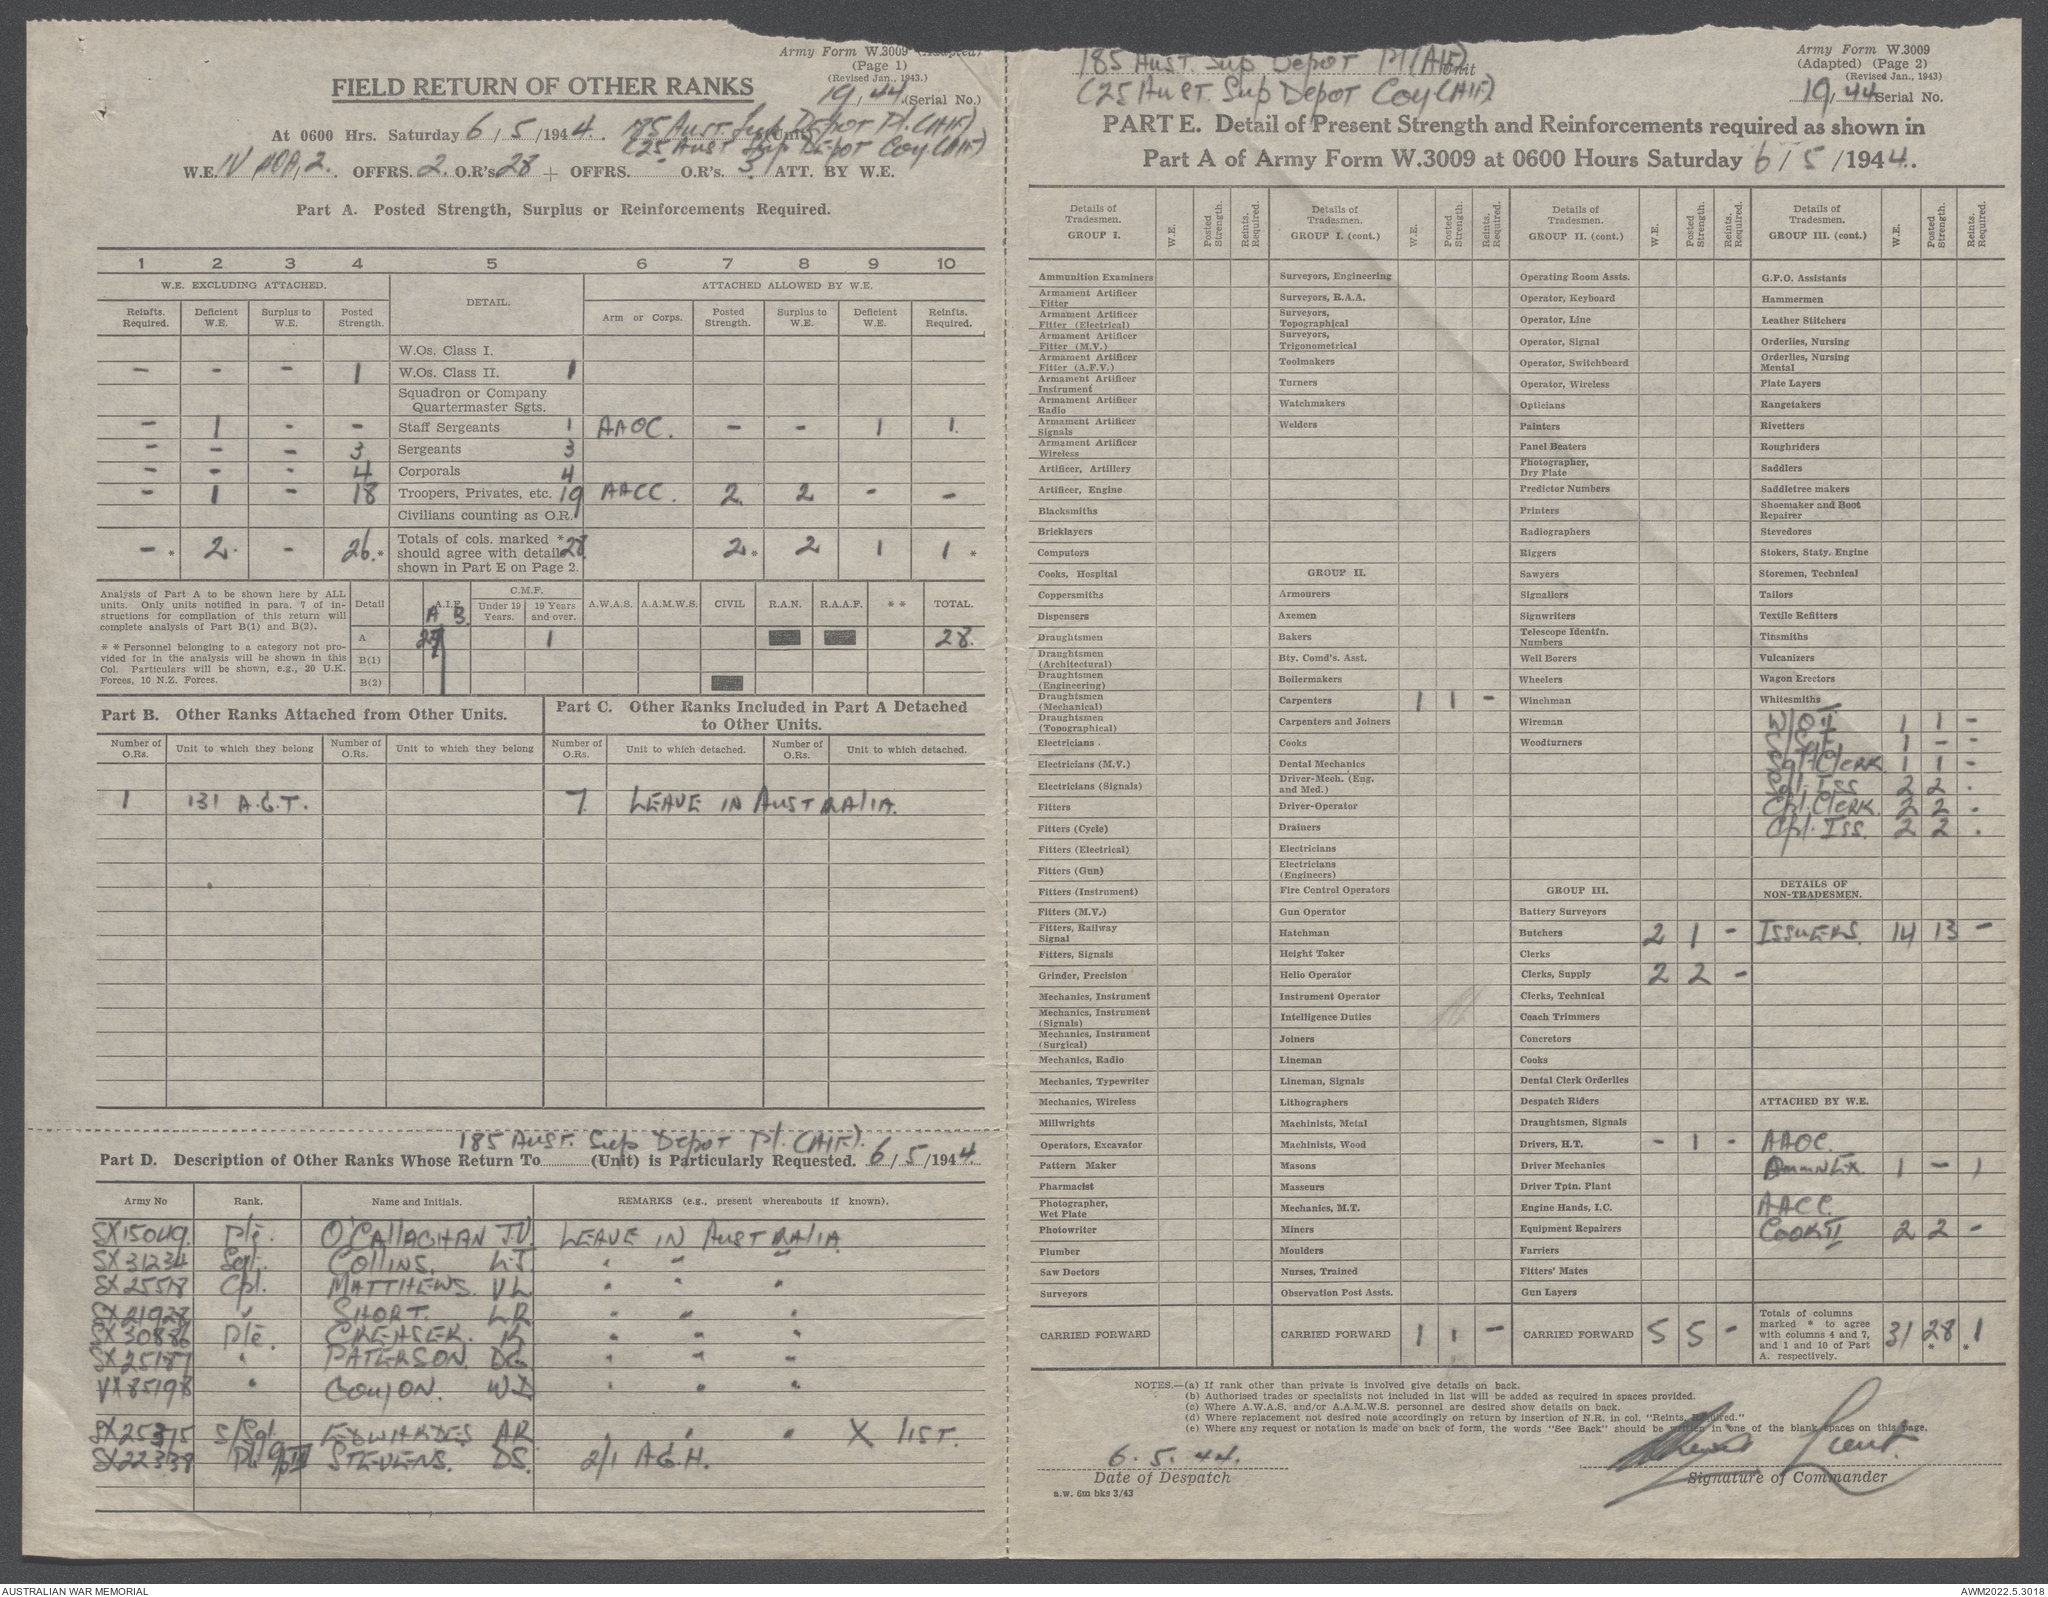 Army Form W.3009 (Adapted)
(Page 1)
(Revised Jan., 1943.)
FIELD RETURN OF OTHER RANKS
19/44 (Serial No.)
At 0600 Hrs. Saturday 6/5/1944. 185 Aust. Sup Depot Pl. (AIF) (Unit)
(25 Aust Sup Depot Coy (AIF)
W.E. IV/ 2. OFFRS. 2. O.R's 28 + OFFRS. O.R's. 3. ATT. BY W.E.
Part A. Posted Strength, Surplus or Reinforcements Required.
1 2 3 4 5 6 7 8 9 10
W.E. EXCLUDING ATTACHED. DETAIL. ATTACHED ALLOWED BY W.E.
Reinfts. Required. Deficient W.E. Surplus to W.E. Posted Strength. Arm or Corps. Posted Strength. Surplus to W.E. Deficient W.E. Reinfts. Required.
W.Os. Class I.
- - - 1 W.Os. Class II. 1
Squadron or Company Quartermaster Sgts.
- 1 - - Staff Sergeants 1 AAOC. - - 1 1.
- - - 3 Sergeants 3
- - - 4 Corporals 4
- 1 - 18 Troopers, Privates, etc. 19 AACC. 2. 2 - -
Civilians counting as O.R.
- * 2. - 26. * Totals of cols. marked * should agree with details shown in Part E on Page 2. 28 2 * 2 1 1 *
Analysis of Part A to be shown here by ALL units. Only units notified in para. 7 of instructions for compilation of this return will complete analysis of Part B(1) and B(2).
* * Personnel belonging to a category not provided for in the analysis will be shown in this Col. Particulars will be shown, e.g., 20 U.K. Forces, 10 N.Z. Forces.
Detail A.I.F. A B. C.M.F. Under 19 Years. 19 Years and over. A.W.A.S. A.A.M.W.S. CIVIL R.A.N. R.A.A.F. * * TOTAL.
A 27 1 28.
B(1)
B(2)
Part B. Other Ranks Attached from Other Units.
Part C. Other Ranks Included in Part A Detached to Other Units.
Number of O.Rs. Unit to which they belong Number of O.Rs. Unit to which they belong Number of O.Rs. Unit to which detached. Number of O.Rs. Unit to which detached.
1 131 A.G.T. 7. LEAVE IN AUSTRALIA.
185 Aust. Sup Depot Pl. (AIF).
Part D. Description of Other Ranks Whose Return To (Unit) is Particularly Requested. 6/5/1944.
Army No Rank. Name and Initials. REMARKS (e.g., present whereabouts if known).
SX15049. Pte. O'CALLAGHAN J.V. LEAVE IN AUSTRALIA
SX31234 Sgt. COLLINS. L.J. " " "
SX25518 Cpl. MATTHEWS. V L " " "
SX21928 " SHORT. L R " " "
SX30886 Pte. K " " "
SX25187 " PATERSON. DG " " "
VX85198 " W.I " " "
SX25375 S/Sgt. EDWARDES AR " " X LIST.
SX22338 STEVENS. DS. 2/1 A.G.H.
185 Aust. Sup Depot Pl (AIF) Unit
(25 Aust. Sup Depot Coy (AIF)
Army Form W.3009
(Adapted) (Page 2)
(Revised Jan., 1943)
19/44 Serial No.
PART E. Detail of Present Strength and Reinforcements required as shown in
Part A of Army Form W.3009 at 0600 Hours Saturday 6/5/1944.
Details of Tradesmen. GROUP I. W.E. Posted Strength. Reinfts. Required.
Ammunition Examiners
Armament Artificer Fitter
Armament Artificer Fitter (Electrical)
Armament Artificer Fitter (M.V.)
Armament Artificer Fitter (A.F.V.)
Armament Artificer Instrument
Armament Artificer Radio
Armament Artificer Signals
Armament Artificer Wireless
Artificer, Artillery
Artificer, Engine
Blacksmiths
Bricklayers
Computors
Cooks, Hospital
Coppersmiths
Dispensers
Draughtsmen
Draughtsmen (Architectural)
Draughtsmen (Engineering)
Draughtsmen (Mechanical)
Draughtsmen (Topographical)
Electricians
Electricians (M.V.)
Electricians (Signals)
Fitters
Fitters (Cycle)
Fitters (Electrical)
Fitters (Gun)
Fitters (Instrument)
Fitters (M.V.)
Fitters, Railway Signal
Fitters, Signals
Grinder, Precision
Mechanics, Instrument
Mechanics, Instrument (Signals)
Mechanics, Instrument (Surgical)
Mechanics, Radio
Mechanics, Typewriter
Mechanics, Wireless
Millwrights
Operators, Excavator
Pattern Maker
Pharmacist
Photographer, Wet Plate
Photowriter
Plumber
Saw Doctors
Surveyors
CARRIED FORWARD
Details of Tradesmen. GROUP I. (cont.) W.E. Posted Strength. Reinfts. Required.
Surveyors, Engineering
Surveyors, R.A.A.
Surveyors, Topographical
Surveyors, Trigonometrical
Toolmakers
Turners
Watchmakers
Welders
GROUP II.
Armourers
Axemen
Bakers
Bty. Comd's. Asst.
Boilermakers
Carpenters 1 1 -
Carpenters and Joiners
Cooks
Dental Mechanics
Driver-Mech. (Eng. and Med.)
Driver-Operator
Drainers
Electricians
Electricians (Engineers)
Fire Control Operators
Gun Operator
Hatchman
Height Taker
Helio Operator
Instrument Operator
Intelligence Duties
Joiners
Lineman
Lineman, Signals
Lithographers
Machinists, Metal
Machinists, Wood
Masons
Masseurs
Mechanics, M.T.
Miners
Moulders
Nurses, Trained
Observation Post Assts.
CARRIED FORWARD 1 1 -
Details of Tradesmen. GROUP II. (cont.) W.E. Posted Strength. Reinfts. Required.
Operating Room Assts.
Operator, Keyboard
Operator, Line
Operator, Signal
Operator, Switchboard
Operator, Wireless
Opticians
Painters
Panel Beaters
Photographer, Dry Plate
Predictor Numbers
Printers
Radiographers
Riggers
Sawyers
Signallers
Signwriters
Telescope Identfn. Numbers
Well Borers
Wheelers
Winchman
Wireman
Woodturners
GROUP III.
Battery Surveyors
Butchers 2 1 -
Clerks
Clerks, Supply 2 2 -
Clerks, Technical
Coach Trimmers
Concretors
Cooks
Dental Clerk Orderlies
Despatch Riders
Draughtsmen, Signals
Drivers, H.T. - 1 -
Driver Mechanics
Driver Tptn. Plant
Engine Hands, I.C.
Equipment Repairers
Farriers
Fitters' Mates
Gun Layers
CARRIED FORWARD 5 5 -
Details of Tradesmen. GROUP III. (cont.) W.E. Posted Strength. Reinfts. Required.
G.P.O. Assistants
Hammermen
Leather Stitchers
Orderlies, Nursing
Orderlies, Nursing Mental
Plate Layers
Rangetakers
Rivetters
Roughriders
Saddlers
Saddletree makers
Shoemaker and Boot Repairer
Stevedores
Stokers, Staty. Engine
Storemen, Technical
Tailors
Textile Refitters
Tinsmiths
Vulcanizers
Wagon Erectors
Whitesmiths
W/O II 1 1 -
S/Sgt 1 - -
Sgt. Clerk 1 1 -
Sgt. Iss 2 2 .
Cpl. Clerk. 2 2 -
Cpl. Iss. 2 2 .
DETAILS OF NON-TRADESMEN.
ISSUERS. 14 13 -
ATTACHED BY W.E.
AAOC.
Ammn Ex. 1 - 1
AACC.
COOK II 2 2 -
Totals of columns marked * to agree with columns 4 and 7, and 1 and 10 of Part A. respectively. 31 28 * 1 *
NOTES.—(a) If rank other than private is involved give details on back.
(b) Authorised trades or specialists not included in list will be added as required in spaces provided.
(c) Where A.W.A.S. and/or A.A.M.W.S. personnel are desired show details on back.
(d) Where replacement not desired note accordingly on return by insertion of N.R. in col. "Reints. Required."
(e) Where any request or notation is made on back of form, the words "See Back" should be written in one of the blank spaces on this page.
6. 5. 44.
Date of Despatch
Lieut.
Signature of Commander
a.w. 6m bks 3/43
AUSTRALIAN WAR MEMORIAL
AWM2022.5.3018